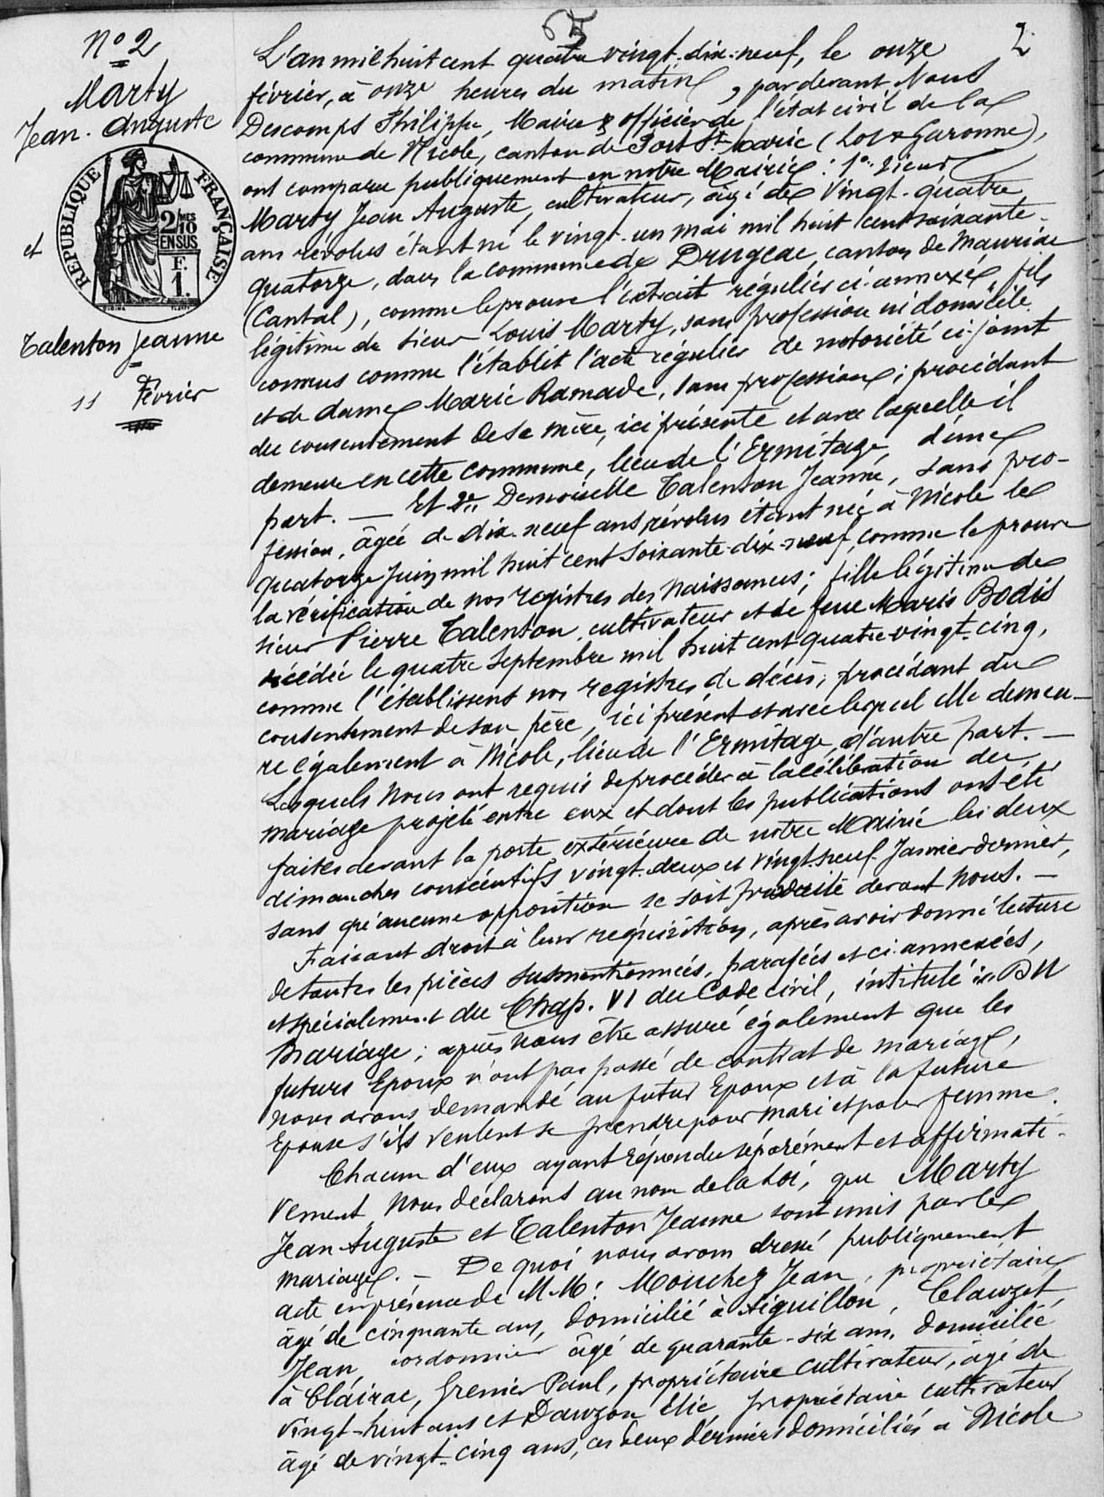 5
2
N° 2
Marty
Jean-Auguste
RÉPUBLIQUE FRANÇAISE
2/10 MES
EN SUS
F.
1.
et
Talenton Jeanne
11 Février
L'an mil huit cent quatre vingt-dix-neuf, le onze
février, à onze heures du matin, par devant Nous
Descomps Philippe, Maire & officier de l'état civil de la
commune de Nicole, canton de Port Ste Marie (Lot & Garonne),
ont comparu publiquement en notre Mairie : 1° Sieur
Marty Jean Auguste, cultivateur, âgé de vingt-quatre
ans révolus étant né le vingt-un mai mil huit cent soixante-
quatorze, dans la commune de Drugeac, canton de Mauriac
(Cantal), comme le prouve l'extrait régulier ci-annexé, fils
légitime de sieur Louis Marty, sans profession ni domicile
connus comme l'établit l'acte régulier de notoriété ci-joint
et de dame Marie Ramade, sans profession ; procédant
du consentement de sa mère, ici présente et avec laquelle il
demeure en cette commune, lieu de l'Ermitage, d'une
part. — Et 2° Demoiselle Talenton Jeanne, sans pro-
fession, âgée de dix-neuf ans révolus étant née à Nicole le
quatorze juin mil huit cent soixante-dix-neuf, comme le prouve
la vérification de nos registres des naissances ; fille légitime de
sieur Pierre Talenton, cultivateur et de feue Marie Bodis
décédée le quatre Septembre mil huit cent quatre-vingt-cinq,
comme l'établissent nos registres de décès, procédant du
consentement de son père, ici présent et avec lequel elle demeu-
re également à Nicole, lieu de l'Ermitage, d'autre part. —
Lesquels nous ont requis de procéder à la célébration du
mariage projeté entre eux et dont les publications ont été
faites devant la porte extérieure de notre Mairie les deux
dimanches consécutifs vingt-deux et vingt-neuf Janvier dernier,
sans qu'aucune opposition se soit produite devant Nous. —
Faisant droit à leur réquisition, après avoir donné lecture
de toutes les pièces susmentionnées, parafées et ci-annexées,
et spécialement du Chap. VI du Code civil, intitulé : Du
Mariage ; après nous être assuré également que les
futurs Epoux n'ont pas passé de contrat de mariage,
nous avons demandé au futur Epoux et à la future
Epouse s'ils veulent se prendre pour mari et pour femme.
Chacun d'eux ayant répondu séparément et affirmati-
vement Nous déclarons au nom de la Loi, que Marty
Jean Auguste et Talenton Jeanne sont unis par le
mariage. — De quoi nous avons dressé publiquement
acte en présence de M.M. : Mouchez Jean, propriétaire
âgé de cinquante ans, domicilié à Aiguillon, Clauzet
Jean cordonnier âgé de quarante-six ans, domicilié
à Clairac, Grenier Paul, propriétaire cultivateur, âgé de
vingt-huit ans et Dauzon Elie propriétaire cultivateur
âgé de vingt-cinq ans, ces deux derniers domiciliés à Nicole